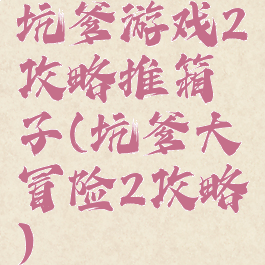 坑爹游戏2
攻略推箱
子(坑爹大
冒险2攻略
)